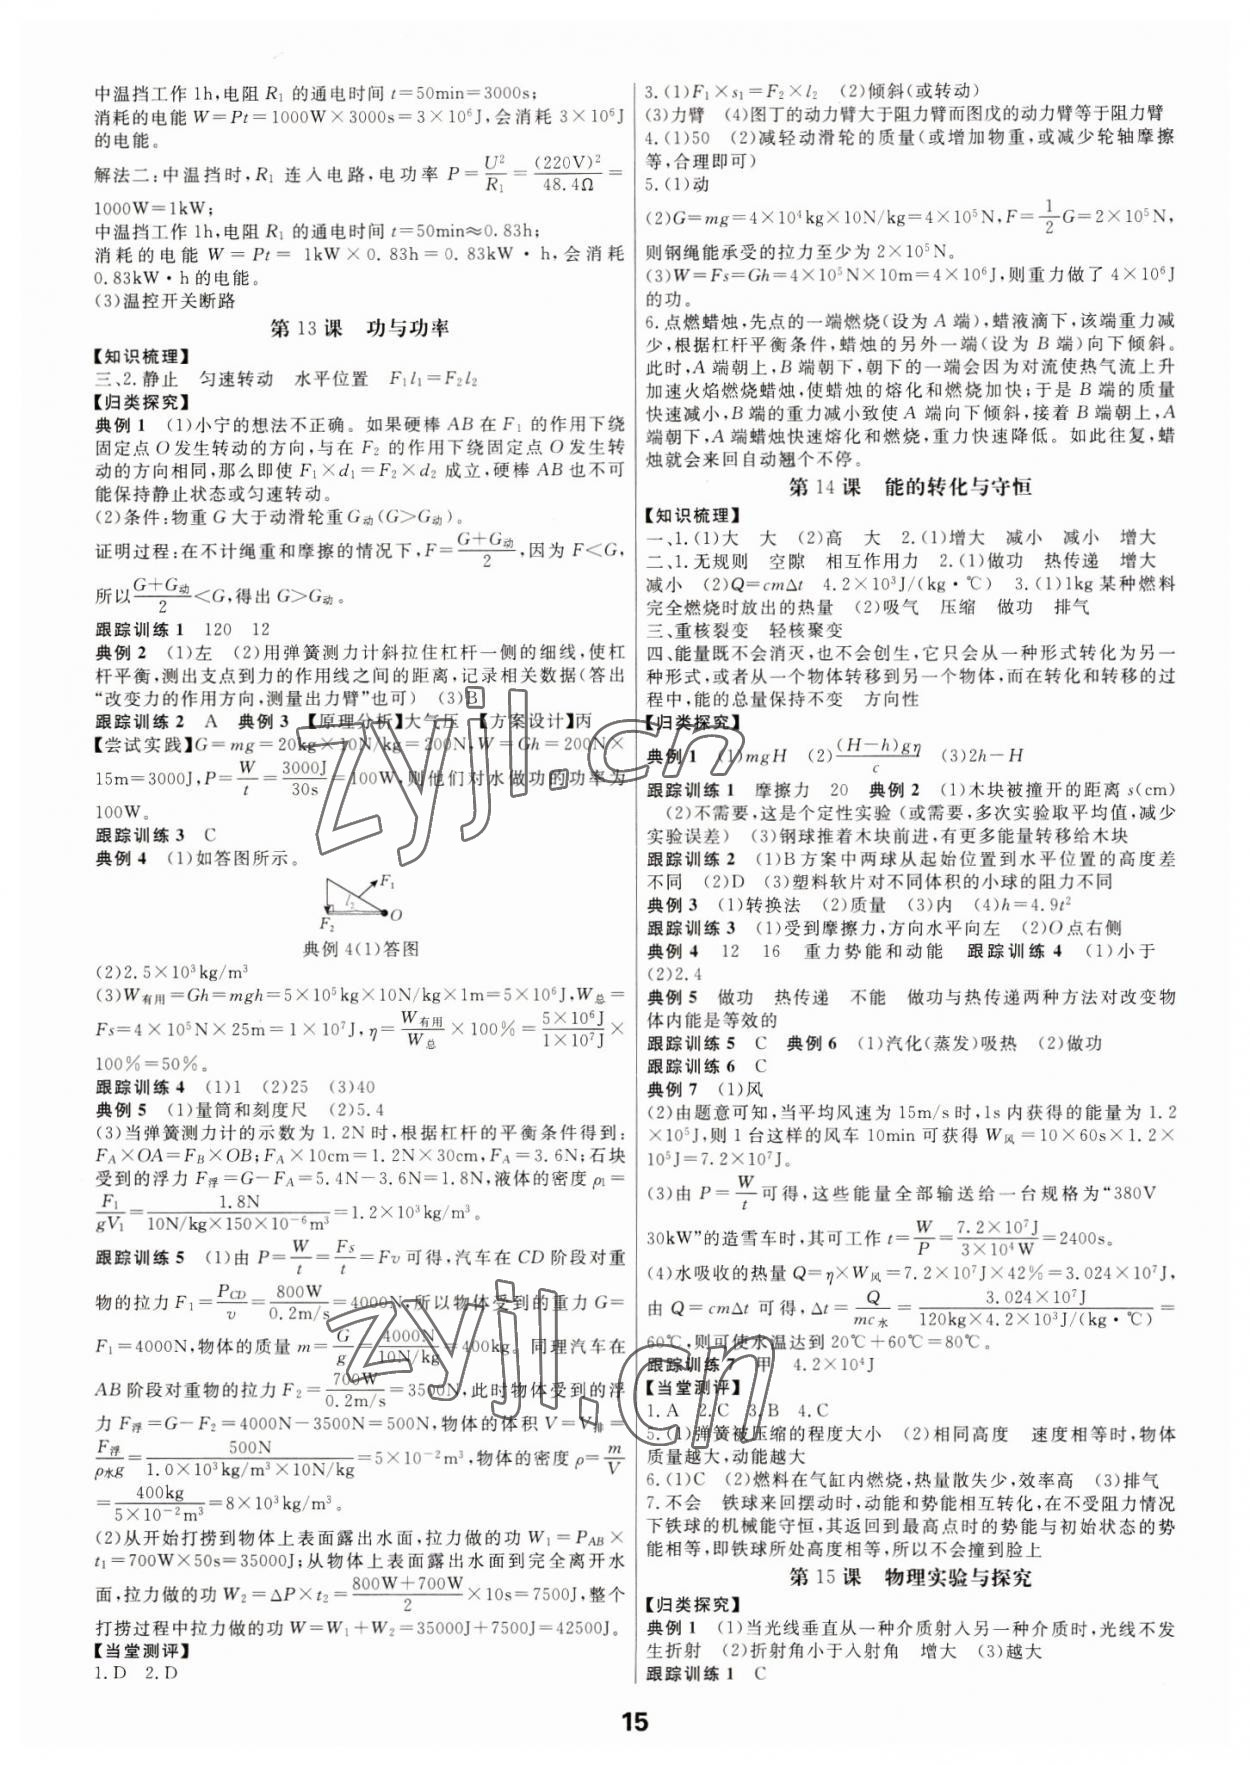 中温挡工作1h,电阻R₁的通电时间t=50min=3000s;
消耗的电能W=Pt=1000W×3000s=3×10⁶J,会消耗3×10⁶J
的电能。
解法二:中温挡时,R₁连入电路,电功率P=U²/R₁=(220V)²/48.4Ω=
1000W=1kW;
中温挡工作1h,电阻R₁的通电时间t=50min≈0.83h;
消耗的电能W=Pt=1kW×0.83h=0.83kW·h,会消耗
0.83kW·h的电能。
(3)温控开关断路
第13课 功与功率
【知识梳理】
三、2.静止 匀速转动 水平位置 F₁l₁=F₂l₂
【归类探究】
典例1 (1)小宁的想法不正确。如果硬棒AB在F₁的作用下绕
固定点O发生转动的方向,与在F₂的作用下绕固定点O发生转
动的方向相同,那么即使F₁×d₁=F₂×d₂成立,硬棒AB也不可
能保持静止状态或匀速转动。
(2)条件:物重G大于动滑轮重G动(G>G动)。
证明过程:在不计绳重和摩擦的情况下,F=(G+G动)/2,因为F<G,
所以(G+G动)/2<G,得出G>G动。
跟踪训练1 120 12
典例2 (1)左 (2)用弹簧测力计斜拉住杠杆一侧的细线,使杠
杆平衡,测出支点到力的作用线之间的距离,记录相关数据(答出
“改变力的作用方向,测量出力臂”也可) (3)B
跟踪训练2 A 典例3 【原理分析】大气压 【方案设计】丙
【尝试实践】G=mg=20kg×10N/kg=200N,W=Gh=200N×
15m=3000J,P=W/t=3000J/30s=100W,则他们对水做功的功率为
100W。
跟踪训练3 C
典例4 (1)如答图所示。
F₁
l₂
F₂
O
典例4(1)答图
(2)2.5×10³kg/m³
(3)W有用=Gh=mgh=5×10⁵kg×10N/kg×1m=5×10⁶J,W总=
Fs=4×10⁵N×25m=1×10⁷J,η=W有用/W总×100%=5×10⁶J/1×10⁷J×
100%=50%。
跟踪训练4 (1)1 (2)25 (3)40
典例5 (1)量筒和刻度尺 (2)5.4
(3)当弹簧测力计的示数为1.2N时,根据杠杆的平衡条件得到:
F_A×OA=F_B×OB;F_A×10cm=1.2N×30cm,F_A=3.6N;石块
受到的浮力F浮=G-F_A=5.4N-3.6N=1.8N,液体的密度ρ₁=
F₁/gV₁=1.8N/(10N/kg×150×10⁻⁶m³)=1.2×10³kg/m³。
跟踪训练5 (1)由P=W/t=Fs/t=Fv可得,汽车在CD阶段对重
物的拉力F₁=P_CD/v=800W/0.2m/s=4000N,所以物体受到的重力G=
F₁=4000N,物体的质量m=G/g=4000N/10N/kg=400kg。同理汽车在
AB阶段对重物的拉力F₂=700W/0.2m/s=3500N,此时物体受到的浮
力F浮=G-F₂=4000N-3500N=500N,物体的体积V=V排=
F浮/ρ水g=500N/(1.0×10³kg/m³×10N/kg)=5×10⁻²m³,物体的密度ρ=m/V
=400kg/5×10⁻²m³=8×10³kg/m³。
(2)从开始打捞到物体上表面露出水面,拉力做的功W₁=P_AB×
t₁=700W×50s=35000J;从物体上表面露出水面到完全离开水
面,拉力做的功W₂=ΔP×t₂=(800W+700W)/2×10s=7500J,整个
打捞过程中拉力做的功W=W₁+W₂=35000J+7500J=42500J。
【当堂测评】
1.D 2.D
3.(1)F₁×s₁=F₂×l₂ (2)倾斜(或转动)
(3)力臂 (4)图丁的动力臂大于阻力臂而图戊的动力臂等于阻力臂
4.(1)50 (2)减轻动滑轮的质量(或增加物重,或减少轮轴摩擦
等,合理即可)
5.(1)动
(2)G=mg=4×10⁴kg×10N/kg=4×10⁵N,F=1/2G=2×10⁵N,
则钢绳能承受的拉力至少为2×10⁵N。
(3)W=Fs=Gh=4×10⁵N×10m=4×10⁶J,则重力做了4×10⁶J
的功。
6.点燃蜡烛,先点的一端燃烧(设为A端),蜡液滴下,该端重力减
少,根据杠杆平衡条件,蜡烛的另外一端(设为B端)向下倾斜。
此时,A端朝上,B端朝下,朝下的一端会因为对流使热气流上升
加速火焰燃烧蜡烛,使蜡烛的熔化和燃烧加快;于是B端的质量
快速减小,B端的重力减小致使A端向下倾斜,接着B端朝上,A
端朝下,A端蜡烛快速熔化和燃烧,重力快速降低。如此往复,蜡
烛就会来回自动翘个不停。
第14课 能的转化与守恒
【知识梳理】
一、1.(1)大 大 (2)高 大 2.(1)增大 减小 减小 增大
二、1.无规则 空隙 相互作用力 2.(1)做功 热传递 增大
减小 (2)Q=cmΔt 4.2×10³J/(kg·℃) 3.(1)1kg某种燃料
完全燃烧时放出的热量 (2)吸气 压缩 做功 排气
三、重核裂变 轻核聚变
四、能量既不会消灭,也不会创生,它只会从一种形式转化为另
一种形式,或者从一个物体转移到另一个物体,而在转化和转移的过
程中,能的总量保持不变 方向性
【归类探究】
典例1 (1)mgH (2)(H-h)gη/c (3)2h-H
跟踪训练1 摩擦力 20 典例2 (1)木块被撞开的距离s(cm)
(2)不需要,这是个定性实验(或需要,多次实验取平均值,减少
实验误差) (3)钢球推着木块前进,有更多能量转移给木块
跟踪训练2 (1)B方案中两球从起始位置到水平位置的高度差
不同 (2)D (3)塑料软片对不同体积的小球的阻力不同
典例3 (1)转换法 (2)质量 (3)内 (4)h=4.9t²
跟踪训练3 (1)受到摩擦力,方向水平向左 (2)O点右侧
典例4 12 16 重力势能和动能 跟踪训练4 (1)小于
(2)2.4
典例5 做功 热传递 不能 做功与热传递两种方法对改变物
体内能是等效的
跟踪训练5 C 典例6 (1)汽化(蒸发)吸热 (2)做功
跟踪训练6 C
典例7 (1)风
(2)由题意可知,当平均风速为15m/s时,1s内获得的能量为1.2
×10⁵J,则1台这样的风车10min可获得W风=10×60s×1.2×
10⁵J=7.2×10⁷J。
(3)由P=W/t可得,这些能量全部输送给一台规格为“380V
30kW”的造雪车时,其可工作t=W/P=7.2×10⁷J/3×10⁴W=2400s。
(4)水吸收的热量Q=η×W风=7.2×10⁷J×42%=3.024×10⁷J,
由Q=cmΔt可得,Δt=Q/mc水=3.024×10⁷J/(120kg×4.2×10³J/(kg·℃))=
60℃,则可使水温达到20℃+60℃=80℃。
跟踪训练7 甲 4.2×10⁴J
【当堂测评】
1.A 2.C 3.B 4.C
5.(1)弹簧被压缩的程度大小 (2)相同高度 速度相等时,物体
质量越大,动能越大
6.(1)C (2)燃料在气缸内燃烧,热量散失少,效率高 (3)排气
7.不会 铁球来回摆动时,动能和势能相互转化,在不受阻力情况
下铁球的机械能守恒,其返回到最高点时的势能与初始状态的势
能相等,即铁球所处高度相等,所以不会撞到脸上
第15课 物理实验与探究
【归类探究】
典例1 (1)当光线垂直从一种介质射入另一种介质时,光线不发
生折射 (2)折射角小于入射角 增大 (3)越大
跟踪训练1 C
15
zyjl.cn
zyjl.cn